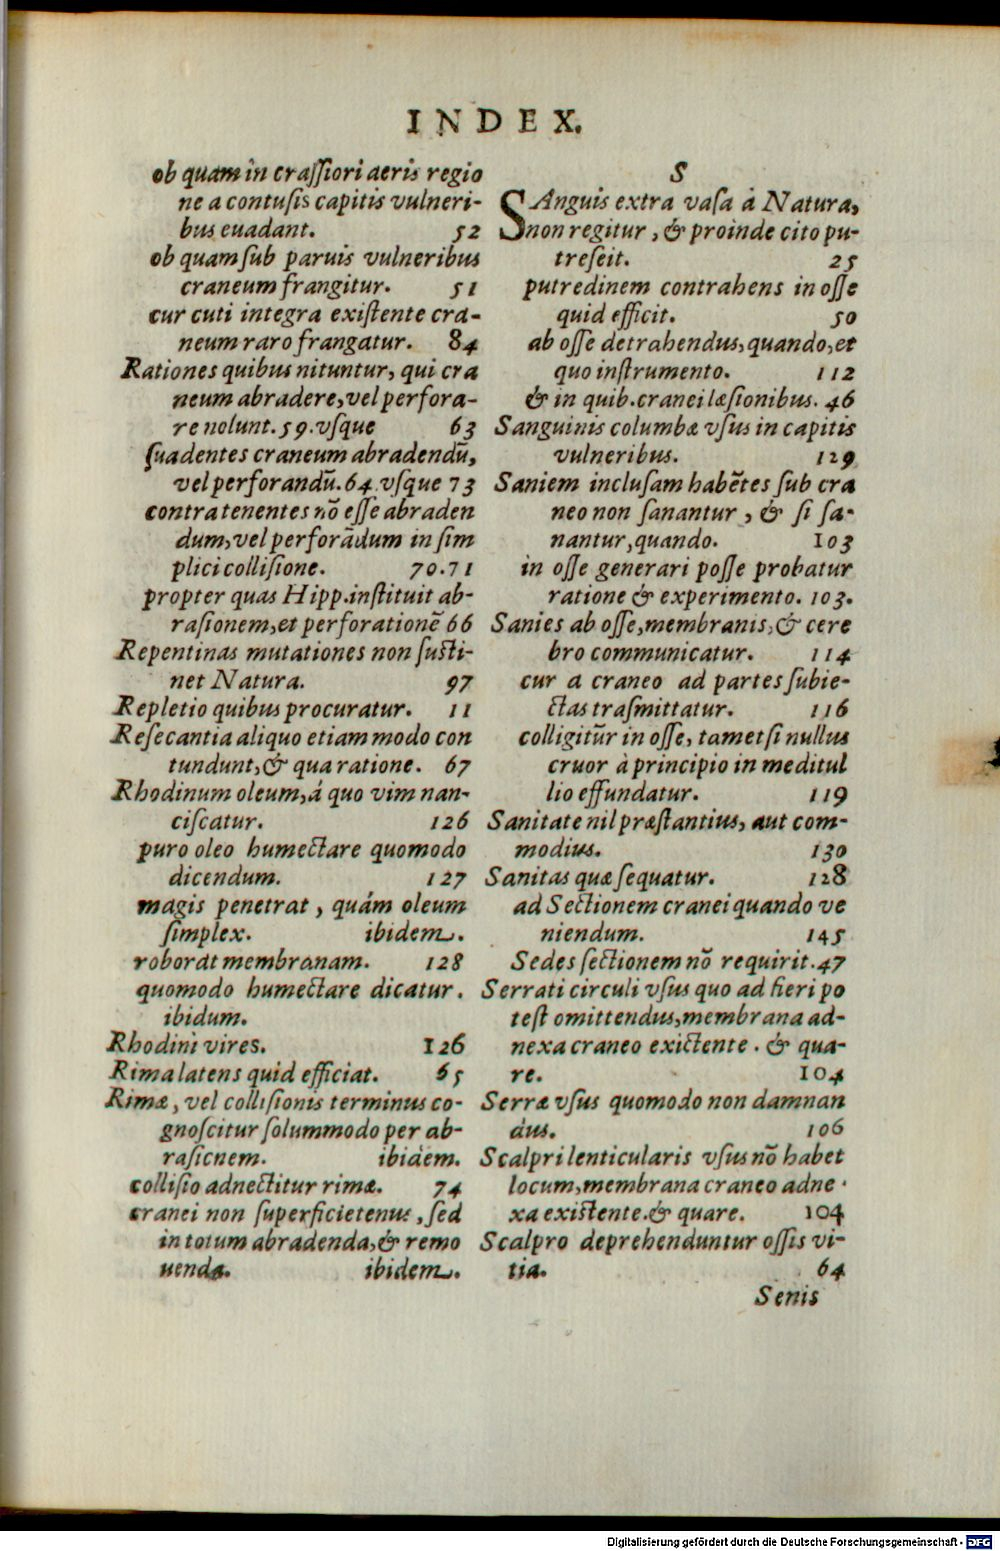 INDEX.
ob quam in craſſiori aeris regio
ne a contuſis capitis vulneri-
bus euadant. 52
ob quam ſub paruis vulneribus
craneum frangitur. 51
cur cuti integra exiſtente cra-
neum raro frangatur. 84
Rationes quibus nituntur, qui cra
neum abradere, vel perfora-
re nolunt. 59. vſque 63
ſuadentes craneum abradendū,
vel perforandū. 64. vſque 73
contra tenentes nō eſſe abraden
dum, vel perforādum in ſim
plici colliſione. 70.71
propter quas Hipp. inſtituit ab-
raſionem, et perforationē 66
Repentinas mutationes non ſuſti-
net Natura. 97
Repletio quibus procuratur. 11
Reſecantia aliquo etiam modo con
tundunt, & qua ratione. 67
Rhodinum oleum, á quo vim nan-
ciſcatur. 126
puro oleo humectare quomodo
dicendum. 127
magis penetrat, quám oleum
ſimplex. ibidem.
roborat membranam. 128
quomodo humectare dicatur.
ibidum.
Rhodini vires. 126
Rima latens quid efficiat. 65
Rimæ, vel colliſionis terminus co-
gnoſcitur ſolummodo per ab-
raſicnem. ibidem.
colliſio adnectitur rimæ. 74
cranei non ſuperficietenus, ſed
in totum abradenda, & remo
uenda. ibidem.
S
SAnguis extra vaſa à Natura,
non regitur, & proinde cito pu-
treſeit. 25
putredinem contrahens in oſſe
quid efficit. 50
ab oſſe detrahendus, quando, et
quo inſtrumento. 112
& in quib. cranei læſionibus. 46
Sanguinis columbæ vſus in capitis
vulneribus. 129
Saniem incluſam habētes ſub cra
neo non ſanantur, & ſi ſa-
nantur, quando. 103
in oſſe generari poſſe probatur
ratione & experimento. 103.
Sanies ab oſſe, membranis, & cere
bro communicatur. 114
cur a craneo ad partes ſubie-
ctas traſmittatur. 116
colligitur in oſſe, tametſi nullus
cruor à principio in meditul
lio effundatur. 119
Sanitate nil præſtantius, aut com-
modius. 130
Sanitas quæ ſequatur. 128
ad Sectionem cranei quando ve
niendum. 145
Sedes ſectionem nō requirit. 47
Serrati circuli vſus quo ad fieri po
teſt omittendus, membrana ad-
nexa craneo exictente. & qua-
re. 104
Serræ vſus quomodo non damnan
dus. 106
Scalpri lenticularis vſus nō habet
locum, membrana craneo adne-
xa exiſtente. & quare. 104
Scalpro deprehenduntur oſſis vi-
tia. 64
Senis
Digitalisierung gefördert durch die Deutsche Forschungsgemeinschaft - DFG